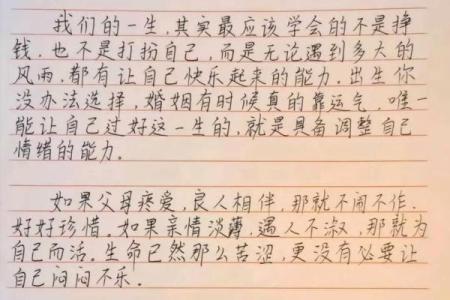 我们的一生,其实最应该学会的不是挣
钱.也不是打扮自己,而是无论遇到多大的
风雨,都有让自己快乐起来的能力.出生你
没办法选择,婚姻有时候真的靠运气.唯一
能让自己过好这一生的,就是具备调整自己
情绪的能力.
如果父母疼爱,良人相伴,那就不闹不作.
好好珍惜.如果亲情淡薄,遇人不淑,那就为
自己而活.生命已然那么苦涩,更没有必要让
自己闷闷不乐.